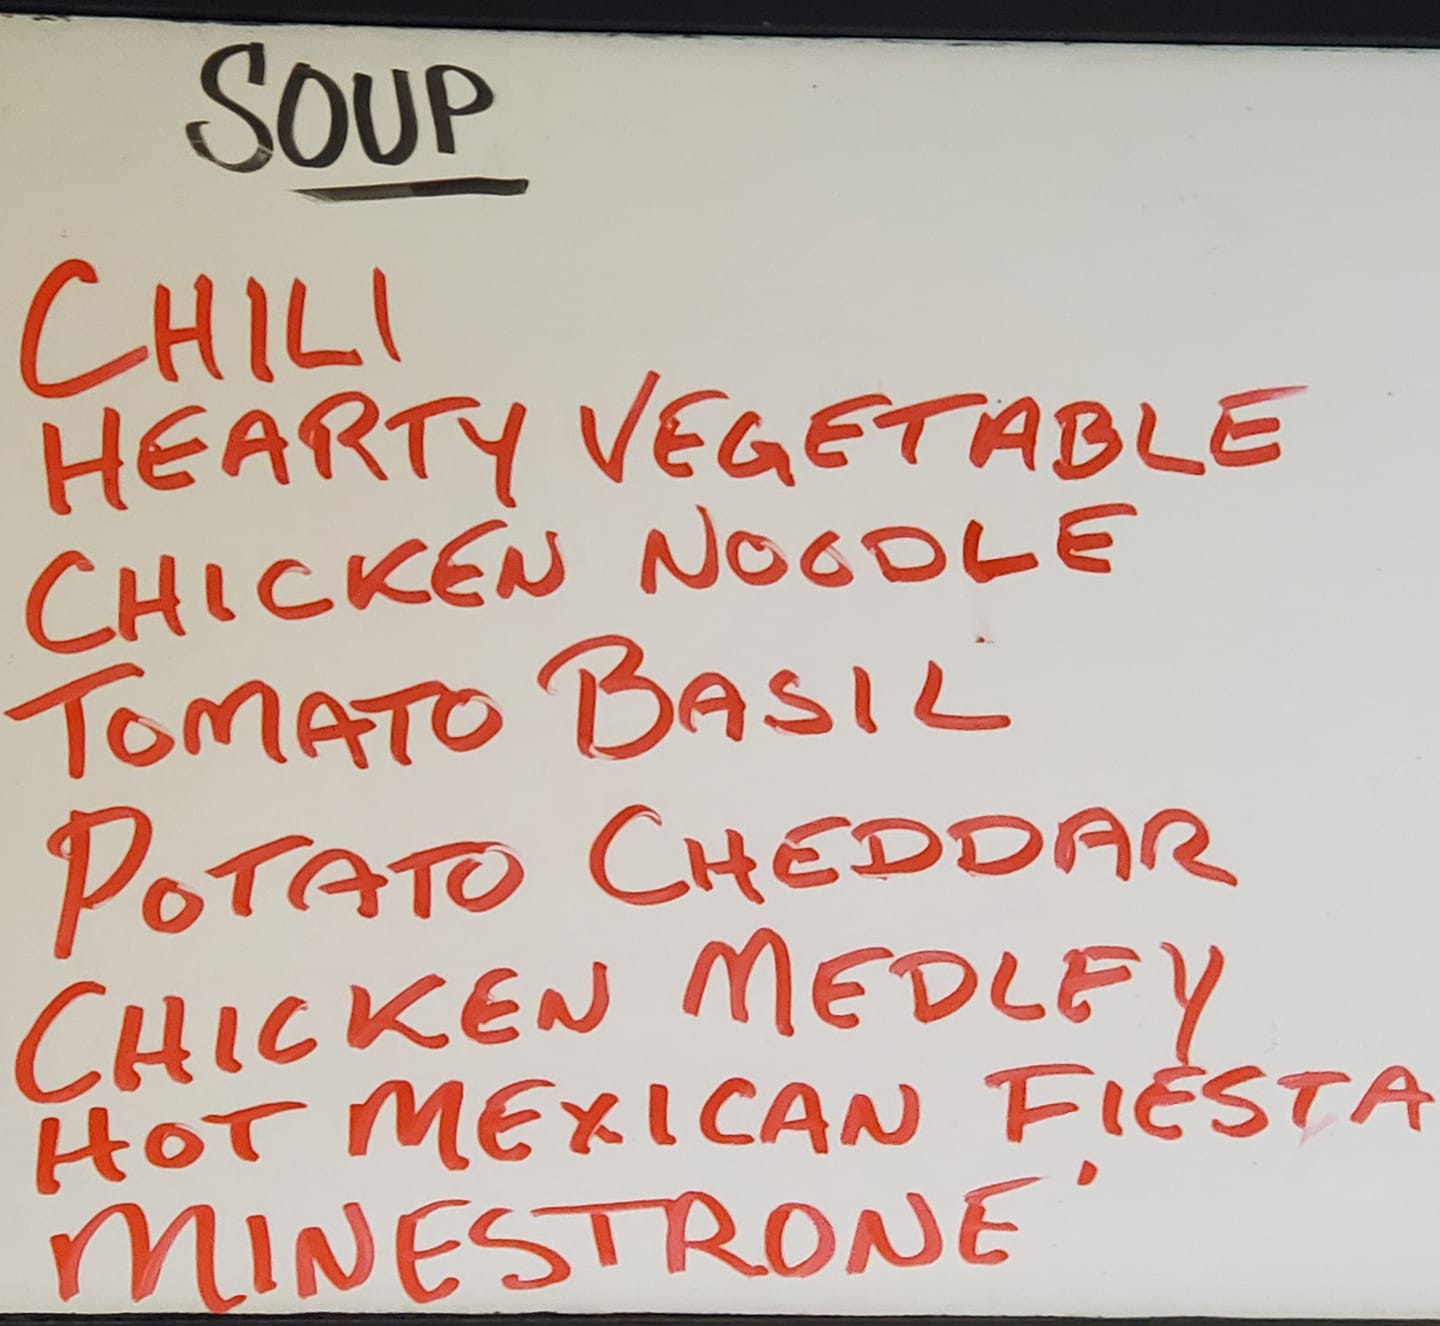 SOUP
CHILI
HEARTY VEGETABLE
CHICKEN NOODLE
TOMATO BASIL
POTATO CHEDDAR
CHICKEN MEDLEY
HOT MEXICAN FIESTA
MINESTRONE'